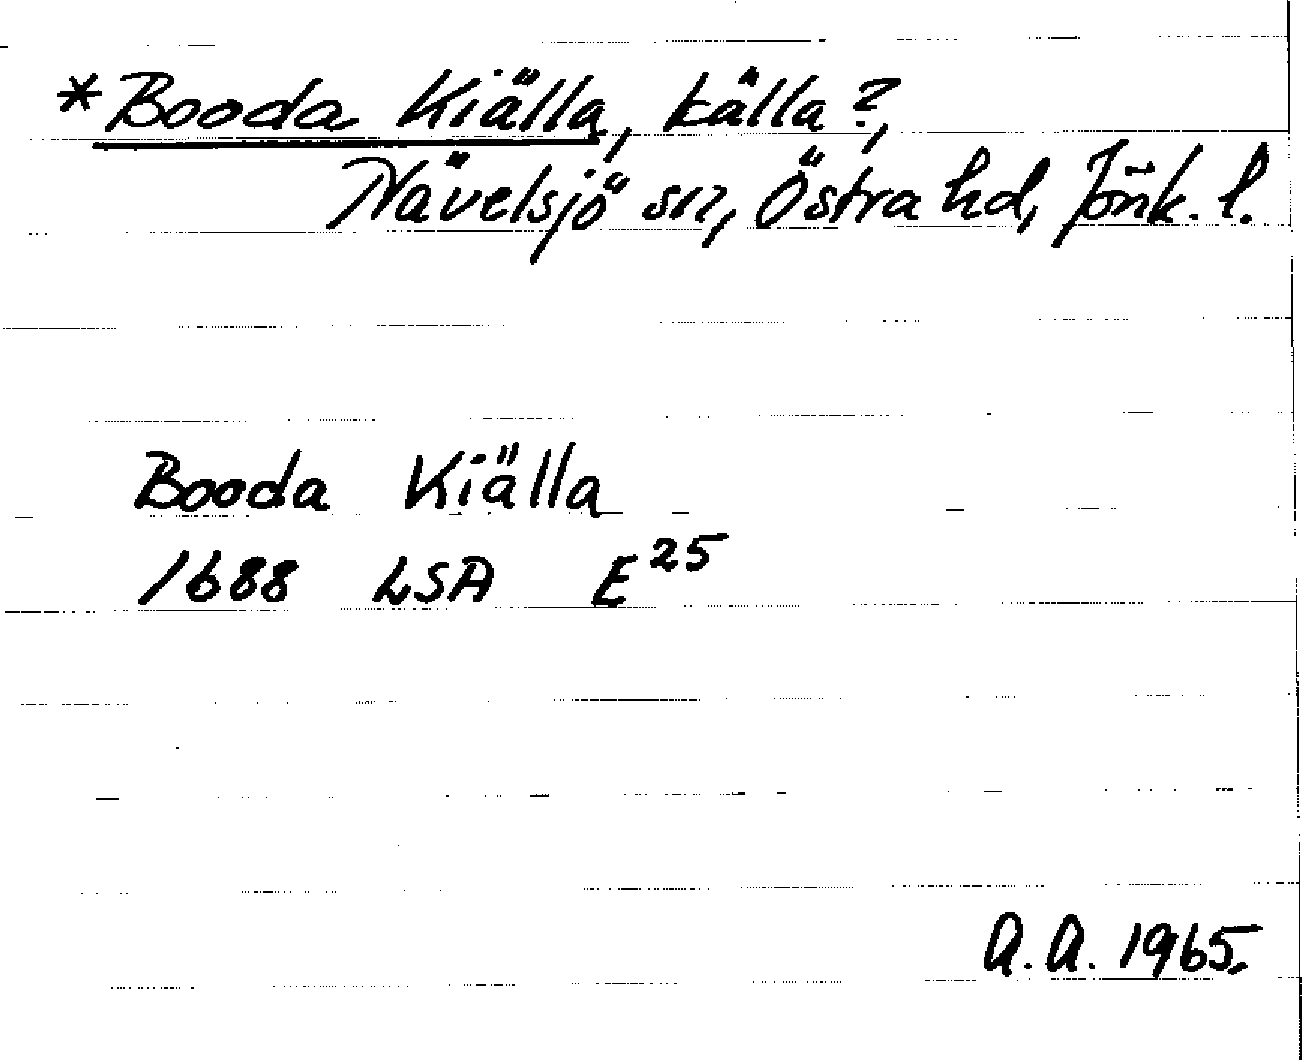 *Booda Kiälla, källa?,
Nävelsjö sn, Östra hd, Jönk. l.
Booda Kiälla
1688 LSA E25
A.A. 1965.